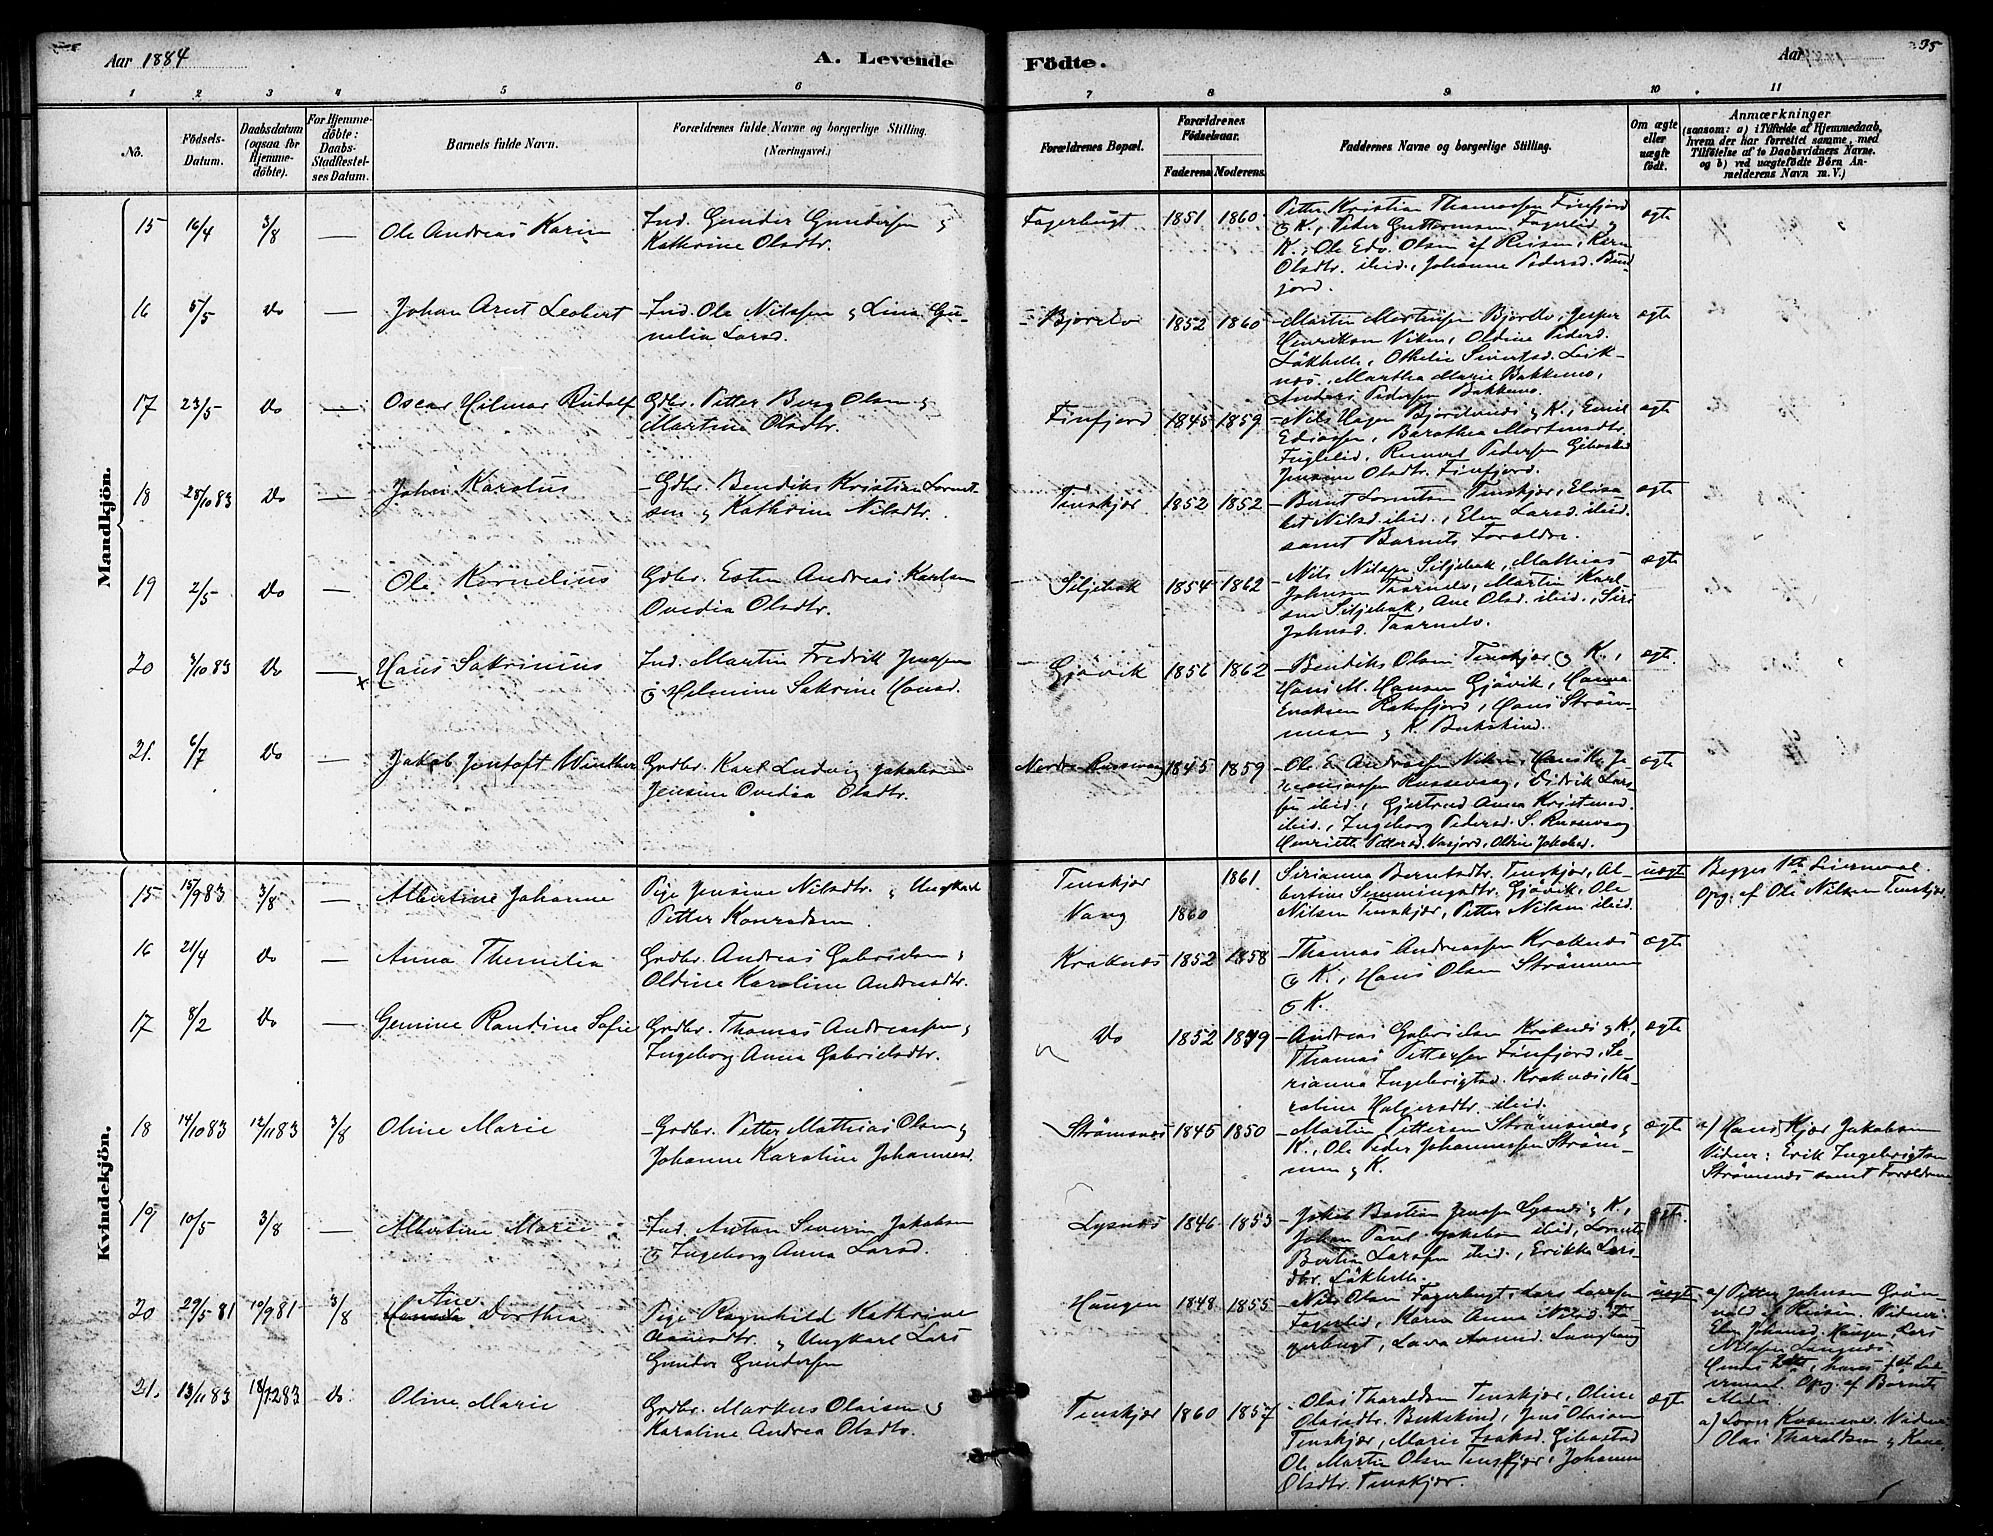 Aar 1884
A. Levende
Födte.
Aar
35
1
2
3
4
5
6
7
8
9
10
11
No.
Födsels-
Datum.
Daabsdatum
(ogsaa for
Hjemme-
döbte).
For Hjemme-
döbte:
Daabs-
Stadfæstel-
ses Datum.
Barnets fulde Navn.
Forældrenes fulde Navne og borgerlige Stilling.
(Næringsvei.)
Forældrenes Bopæl.
Forældrenes
Födselsaar.
Faderens.
Moderens.
Faddernes Navne og borgerlige Stilling.
Om ægte
eller
uægte
födt.
Anmærkninger
(saasom: a) i Tilfælde af Hjemmedaab,
hvem der har forrettet samme, med
Tilföielse af to Daabsvidners Navne.
og b) ved uægtefödte Börn An-
melderens Navn m. V.)
Mandkjön.
15
16/4
3/8
—
Ole Andreas Karin
Ind. Gunder Gundersen og
Kathrine Olsdtr.
Fagerbugt
1851
1860
Petter Kristian Thomassen Finfjord
og K., Peder Guttormsen Fagerlid og
K., Ole Edv. Olsen af Reisen, Karn
Olsdtr. ibid., Johanne Pedersd.
jord.
ægte
16
5/5
Do
—
Johan Arnt Leobert
Ind. Ole Nilssen og Lina Gu-
nelia Larsd.
Bjorelv
1852
1860
Martin Mortensen Bjorelv, Jesper
Henriksen Viken, Oldine Peders.
Låkhelle, Othelie Sivertsd. Leik-
nes, Martha Marie Bakkemo,
Anders Pedersen Bakkemo.
ægte
17
23/5
Do
—
Oscar Hilmar Rudolf
Gdbr. Petter Berg Olsen og
Martine Olsdtr.
Finfjord
1845
1859
Nils Hagen Bjorelvnes og K., Emil
Ediassen, Barothea Mortensdtr.
Fuglelid, Pedersen Gibostad
Jensine Olsdtr. Finfjord.
ægte
18
28/10 83
Do
—
Johan Karolus
Gdbr. Bendiks Kristian Lornt-
sen og Kathrine Nilsdtr.
Tenskjær
1852
1852
Bernt Lorntsen Tenskjær, Elisa-
bet Nilsd. ibid., Elen Larsd. ibid.
samt Barnets Forældre.
ægte
19
2/5
Do
—
Ole Kornelius
Gdbr. Esten Andreas Karlsen
Ovedia Olsdtr.
Siljebak
1854
1862
Nils Nilssen Siljebak, Mathias
Johnsen Taarnelv, Martin Karl-
sen Siljebak, Ane Olsd. ibid., Siri
Johnsd. Taarnelv.
ægte
20
3/10 83
Do
—
Hans Sakrinius
Ind. Martin Fredrik Jenssen
og Helmine Sakrine Hansd.
Gjövik
1856
1862
Bendiks Olsen Tenskjær og K.,
Hans M. Hansen Gjövik, Hanna
Enoksen Roksfjord, Hans Ström-
mesen og K. Bukskind.
ægte
21.
6/7
Do
—
Jakob Jentoft Winther
Gdbr. Karl Ludvig Jakobsen
Jensine Ovedia Olsdtr.
Nordre Russevaag
1845
1859
Ole E. Andreassen Viken, Hans K. Je-
remiassen Russevaag, Didrik Lars-
sen ibid., Gjertrud Anna Kristensd.
ibid., Ingeborg Pedersd. S. Russevaag
Henriette Pettersd. Vasjord, Oline Jakobsd.
ægte
Kvindekjön.
15
15/9 83
3/8
—
Albertine Johanne
Pige Jensine Nilsdtr. og Ungkarl
Petter Konradsen
Tenskjær
Vang
1860
1861
Sirianna Berntsdtr. Tenskjær, Al-
bertine Simmingsdtr. Gjövik, Ole
Nilsen Tenskjær, Petter Nilsen ibid.
uægte
Begges 1ste Leiermaal
Opg. af Ole Nilsen Tenskjær
16
21/4
Do
—
Anna Themilia
Grdbr. Andreas Gabrielsen og
Oldine Karoline Andreasdtr.
Kraknes
1852
1858
Thomas Andreassen Kraknes
og K., Hans Olsen Strömmen
og K.
ægte
17
8/2
Do
—
Gemine Randine Sofie
Grdbr. Thomas Andreassen og
Ingeborg Anna Gabrielsdtr.
Do
1852
1849
Andreas Gabrielsen Kraknes og K.,
Thomas Pettersen Finfjord, Se-
rianna Ingebrigtsd. Kraknes, Ka-
roline Holgersdtr. ibid.
ægte
18
14/10 83
12/11 83
3/8
Oline Marie
Grdbr. Petter Mathias Olsen og
Johanne Karoline Johannesd.
Strömsnes
1845
1850
Martin Pettersen Strömsnes og
K., Ole Peder Johannessen Ström-
men og K.
ægte
a) Hans Kjær Jakobsen
Vidner: Erik Ingebrigtsen
Strömsnes samt Forældrene
19
10/5
3/8
—
Albertine Marie
Ind. Anton Severin Jakobsen
og Ingeborg Anna Larsd.
Lysnes
1846
1853
Jakob Bastian Jenssen Lysnes og K.,
Johan Paul Jakobsen ibid., Lornts
Bertin Larssen ibid., Erikka Lars-
dtr. Låkhelle.
ægte.
20
29/5 81
10/9 81
3/8
Ane
Dorthea
Pige Ragnhild Kathrine
Aamodtr. og Ungkarl Lars
Gunder Gundersen
Haugen
1848
1855
Nils Olsen Fagerbugt, Lars Larssen
Fagerlid, Karen Anna Nilsd. Fa-
gerbugt, Lava Aamod. Langhaug
uægt.
a) Petter Johnsen Grön-
vold, Reisen, Vidner:
Elen Johansd. Haugen, Lars
Nilssen Langnes.
Hennes 2det, hans 1ste Lei-
ermaal. Opg. af Barnets
Moder
21.
13/11 83
18/12 83
Do.
Oline Marie
Grdbr. Markus Olaisen og
Karoline Andrea Olsdtr.
Tenskjær
1860
1857
Olai Tharaldsen Tenskjær, Oline
Olaisdtr. Bukskind, Jens Olaisen
Tenskjær, Marie Isaksd. Gibostad
Ole Martin Olsen Tenskjær, Johanna
Olsdtr. Tenskjær.
ægte
a) Lærer Vidner
Olai Tharaldsen og Kone